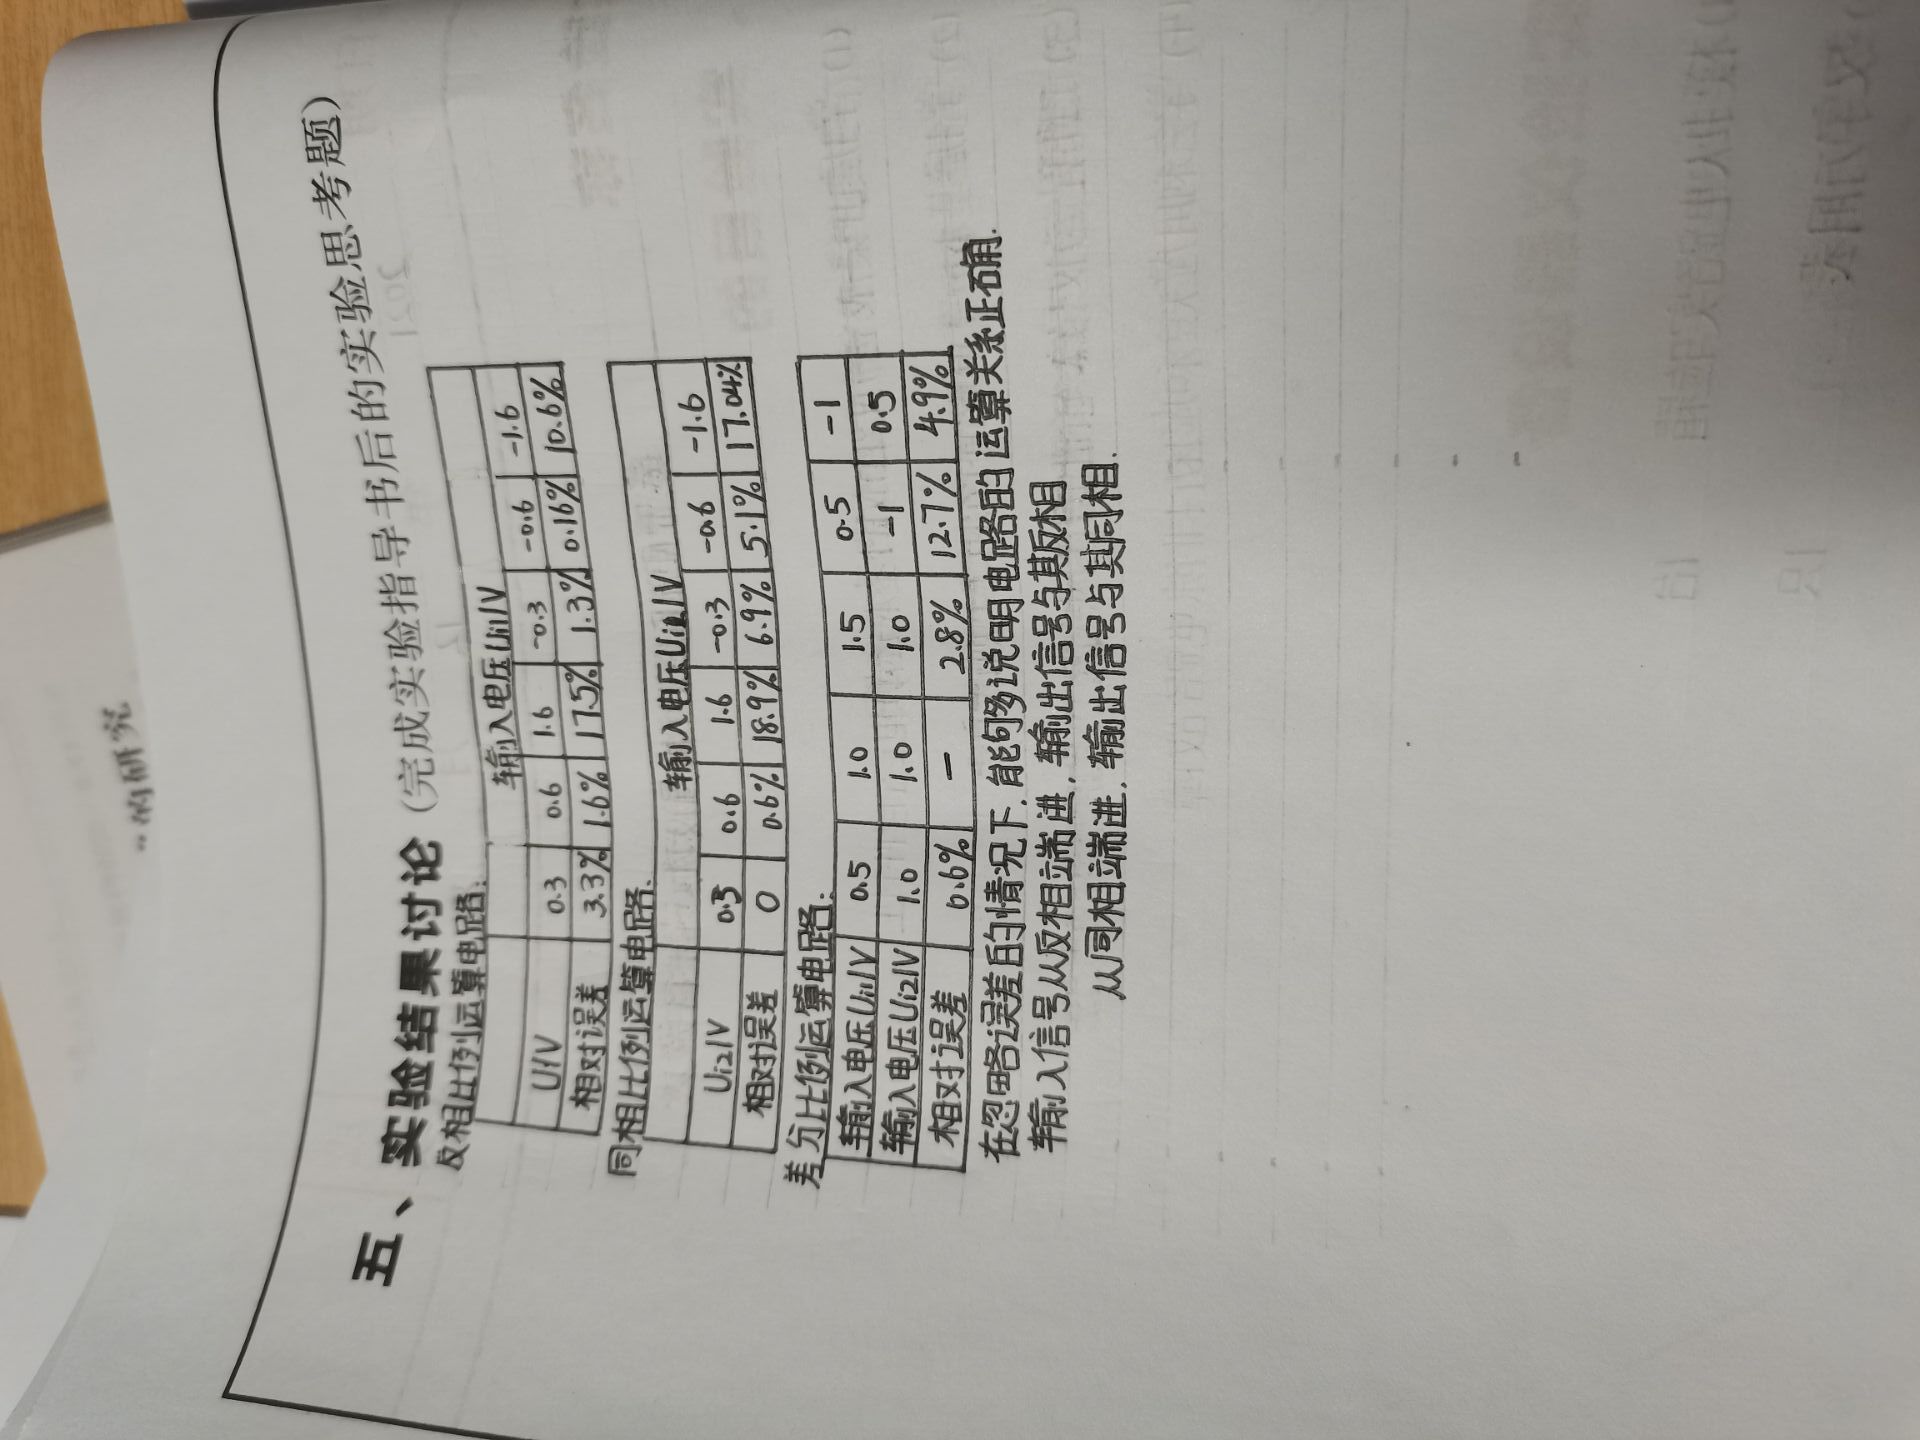 ”的研究
五、实验结果讨论（完成实验指导书后的实验思考题）
反相比例运算电路：
输入电压Ui1/V
U/V 0.3 0.6 1.6 -0.3 -0.6 -1.6
相对误差 3.3% 1.6% 17.5% 1.3% 0.16% 10.6%
同相比例运算电路.
输入电压Ui2/V
Ui2/V 0.3 0.6 1.6 -0.3 -0.6 -1.6
相对误差 0 0.6% 18.9% 6.9% 5.1% 17.04%
差分比例运算电路：
输入电压Ui1/V 0.5 1.0 1.5 0.5 -1
输入电压Ui2/V 1.0 1.0 1.0 -1 0.5
相对误差 0.6% — 2.8% 12.7% 4.9%
在忽略误差的情况下.能够说明电路的运算关系正确.
输入信号从反相端进，输出信号与其反相
从同相端进，输出信号与其同相.